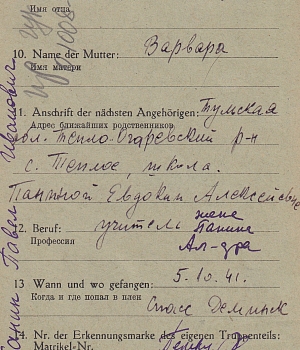 Имя отца
10. Name der Mutter: Варвара
Имя матери
1. Anschrift der nächsten Angehörigen: Тульская
Адрес ближайших родственников
обл. Тепло-Огаревский р-н
с. Теплое, школа.
Паниной Евдокии Алексеевне
жене
12. Beruf: учитель Панина
Профессия
13 Wann und wo gefangen: 5.10.41.
Когда и где попал в плен
Спасс Деминск
14. Nr. der Erkennungsmarke des eigenen Truppenteils:
Matrikel-Nr.
Панин Павел Иванович